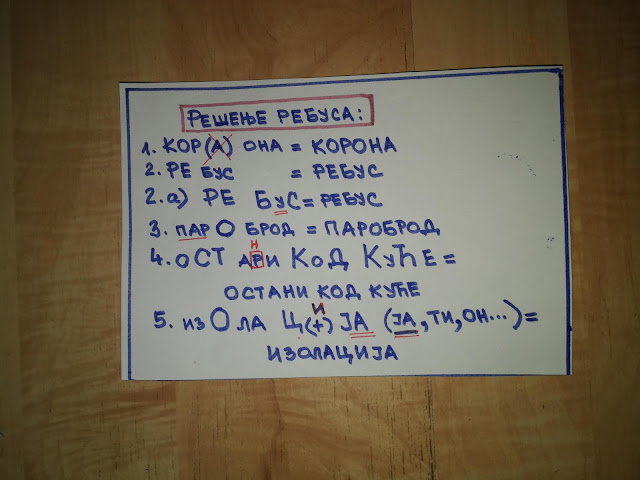 РЕШЕЊЕ РЕБУСА:
1. КОР(А) ОНА = КОРОНА
2. РЕ БУС = РЕБУС
2.а) РЕ БУС = РЕБУС
3. ПАР О БРОД = ПАРОБРОД
Н
4. ОСТ АРИ КОД КУЋЕ =
ОСТАНИ КОД КУЋЕ
И
5. ИЗ О ЛА Ц(+) ЈА (ЈА, ТИ, ОН...) =
ИЗОЛАЦИЈА